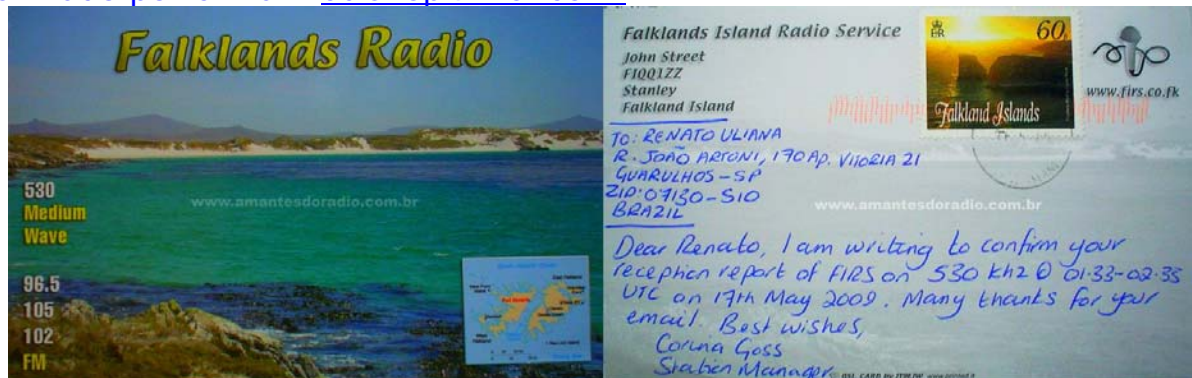 Falklands Radio
530
Medium
Wave
www.amantesdoradio.com.br
96.5
105
102
FM
Falklands Island Radio Service
John Street
FIQQ1ZZ
Stanley
Falkland Island
ER
60
Falkland Islands
www.firs.co.fk
TO: RENATO ULIANA
R. JOÃO ARTONI, 170 Ap. VITORIA 21
GUARULHOS - SP
ZIP: 07130-510
BRAZIL
www.amantesdoradio.com.br
Dear Renato, I am writing to confirm your
reception report of FIRS on 530 khz @ 01:33-02:33
UTC on 17th May 2009. Many thanks for your
email. Best wishes,
Corina Goss
Station Manager